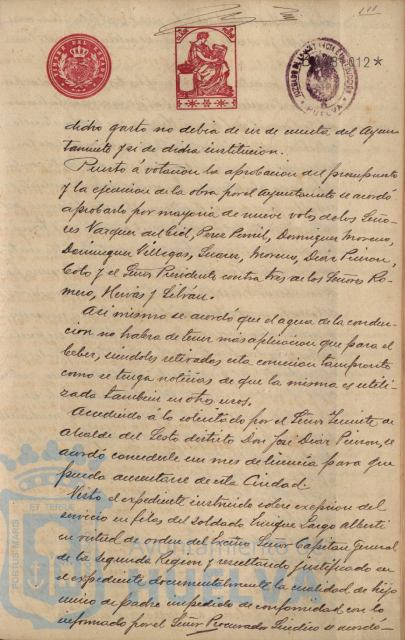 dicho gasto no debia de ser de cuenta del Ayun-
tamiento y si de dicha institucion.
Puesto á votacion la aprobacion del presupuesto
y la ejecucion de la obra por el Ayuntamiento se acordó
aprobarlo por mayoria de nueve votos de los Seño-
res Vazquez del Cid, Perez Dominguez Moreno,
Dominguez Villegas, Suarez, Moreno, Diaz Pinzon,
Coto y el Señor Presidente contra tres de los Señores Ro-
mero, Hervás y
Asi mismo se acordó que el agua de la conduc-
cion no habra de tener mas aplicacion que para el
beber, siendoles retirados esta concesion tan pronto
como se tenga noticias de que la misma es utili-
zada tambien en otros usos.
Accediendo á lo solicitado por el Señor Teniente de
Alcalde del Sesto distrito Don José Diaz Pinzon, se
acordó concederle un mes de licencia para que
pueda ausentarse de esta Ciudad.
Visto el expediente instruido sobre excepcion del
servicio en filas del soldado Enrique Largo Alberti
en virtud de orden del Excmo Señor Capitan General
de la Segunda Region y resultando justificado en
el expediente documentalmente la cualidad de hijo
unico de padre impedido de conformidad con lo
informado por el Señor Procurador Sindico se acordó
HUELVA
Ayuntamiento
PORTUS MARIS ET TERRAE